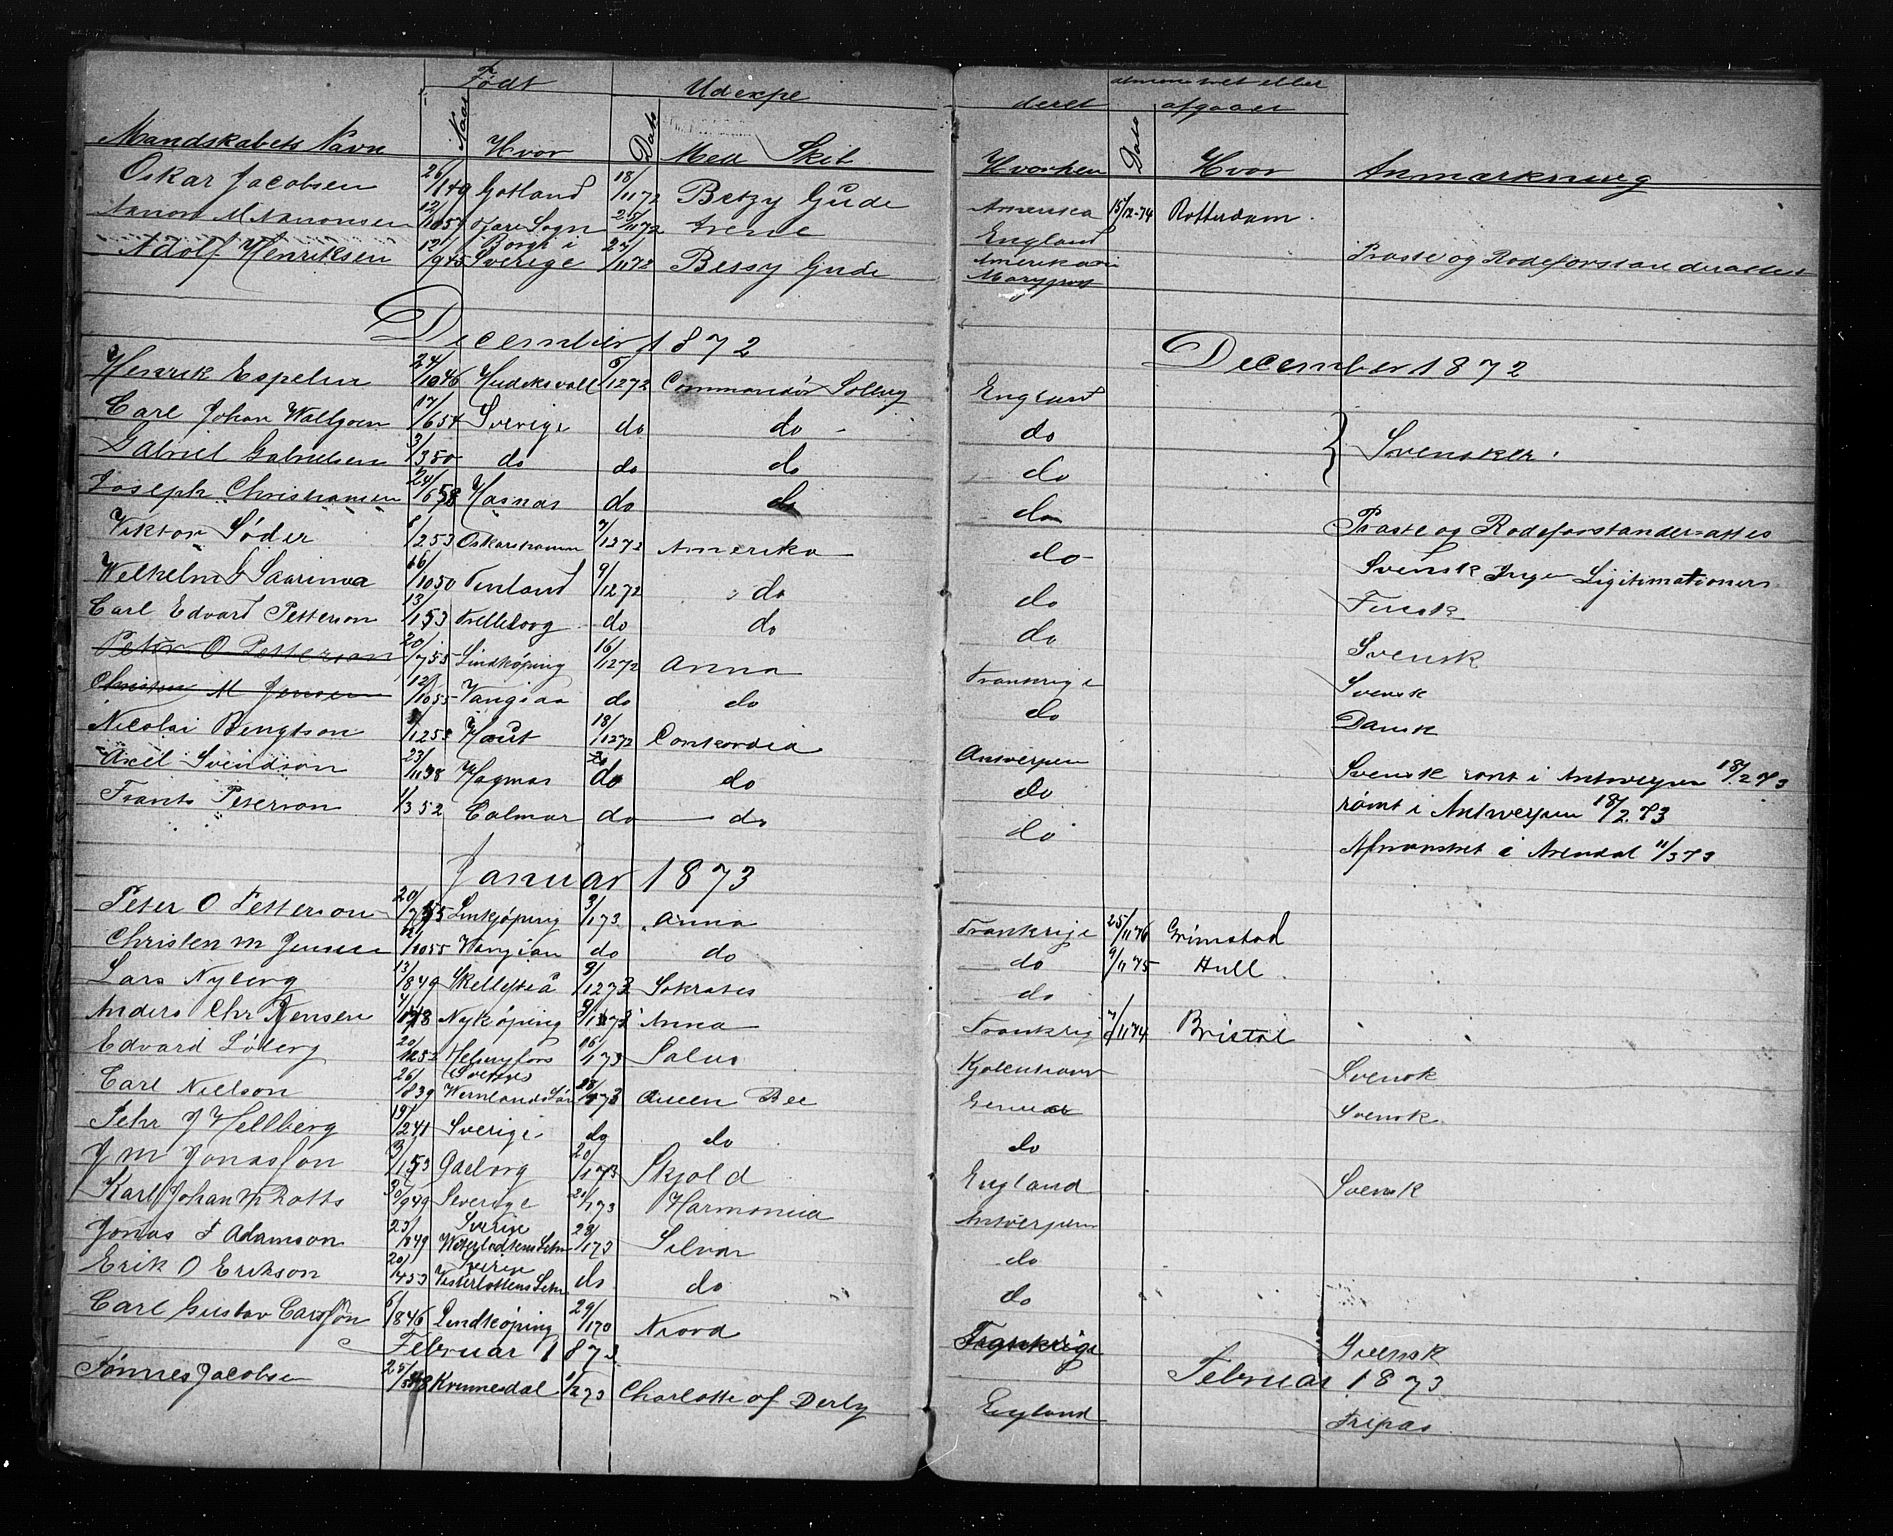 Født Udexpe deret afmønstret eller afgaaet
Mandskabets Navn Naar Hvor Dato Med Skib Hvorhen Dato Hvor Anmærkning
Oskar Jacobsen 26/1 49 Gotland 18/11 72 Betzy Gude Amerika 15/12-74 Rotterdam
Aanon M Aanonsen 12/10 57 Sogn 25/11 72 Irene England
Adolf Henriksen 12/9 45 Borgt i Sverige 22/11 72 Betsy Gude Amerika Præste og Rodeforstanderattest
December 1872 December 1872
Henrik Espelin 24/10 46 Hudeksvall 6/12 72 Commandör Solling England
Carl Johan Wallgren 17/6 54 Sverige do do do
Gabriel Gabrielsen 3/3 50 do do do do Svensker
Joseph Christiansen 24/6 58 Hasnas do do do Præste og Rodeforstanderattes
Viktor Søder 8/2 53 Oskarshamn 7/12 72 Amerika do Svensk Inge Legitimationer
Welhelm Saarinva 16/10 50 Finland 9/12 72 do do Finsk
Carl Edvard Petterson 13/1 53 Trelleborg do do do Svensk
Peter O Petterson 20/7 55 Lindkøping 16/12 72 Anna Frankrige Svensk
Christen M Jensen 12/10 55 Vangiaa do do do Dansk
Nicolai Bengtson 1/12 52 Haut 18/12 72 Conkordia Antverpen Svensk rømt i Antwerpen 18/2 73
Axel Svendson 23/11 38 Hogmar do do do rømt i Antwerpen 18/2.73
Frants Peterson 1/3 52 Calmar do do do Afmønstret i Arendal 11/3 73
Januar 1873
Peter O Petterson 20/7 55 Linkjøping 3/1 73 Anna Frankrige 25/11 76 Grimstad
Christen M Jensen 12/10 55 Wangiaa do do do 9/11 75 Hull
Lars Nyberg 13/8 49 Skellefteå 9/12 72 Sokrates do
Anders Chr Jensen 4/1 48 Nykøping 9/1 73 Anna Frankrig 7/11 74 Bristol
Edvard Søberg 20/12 52 Helsingfors 16/1 73 Salus Kjøbenhavn Svensk
Carl Nielson 26/8 39 Sveriges Wermlands 28/1 73 Queen Bee Genua Svensk
Pehr J Hellberg 19/2 41 Sverige do do do
J M Jonasson 3/1 53 Gøeborg 20/1 73 Skjold England Svensk
Karl Johan M Rotts 30/9 49 Sverige 21/1 73 Harmonia Antverpen
Jonas F Adamson 23/8 49 Sverige Westerbottens Lehn 23/1 73 Silvia do
Erik O Erikson 20/4 53 Sverige Vesterbottens Lehn do do do
Carl Gustav Carlsson 6/8 46 Lindkøping 29/1 70 Niord Frankrige Svensk
Februar 1873 Februar 1873
Tønnes Jacobsen 25/5 48 Kvinnesdal 1/2 73 Charlotte af Derby England Fripas